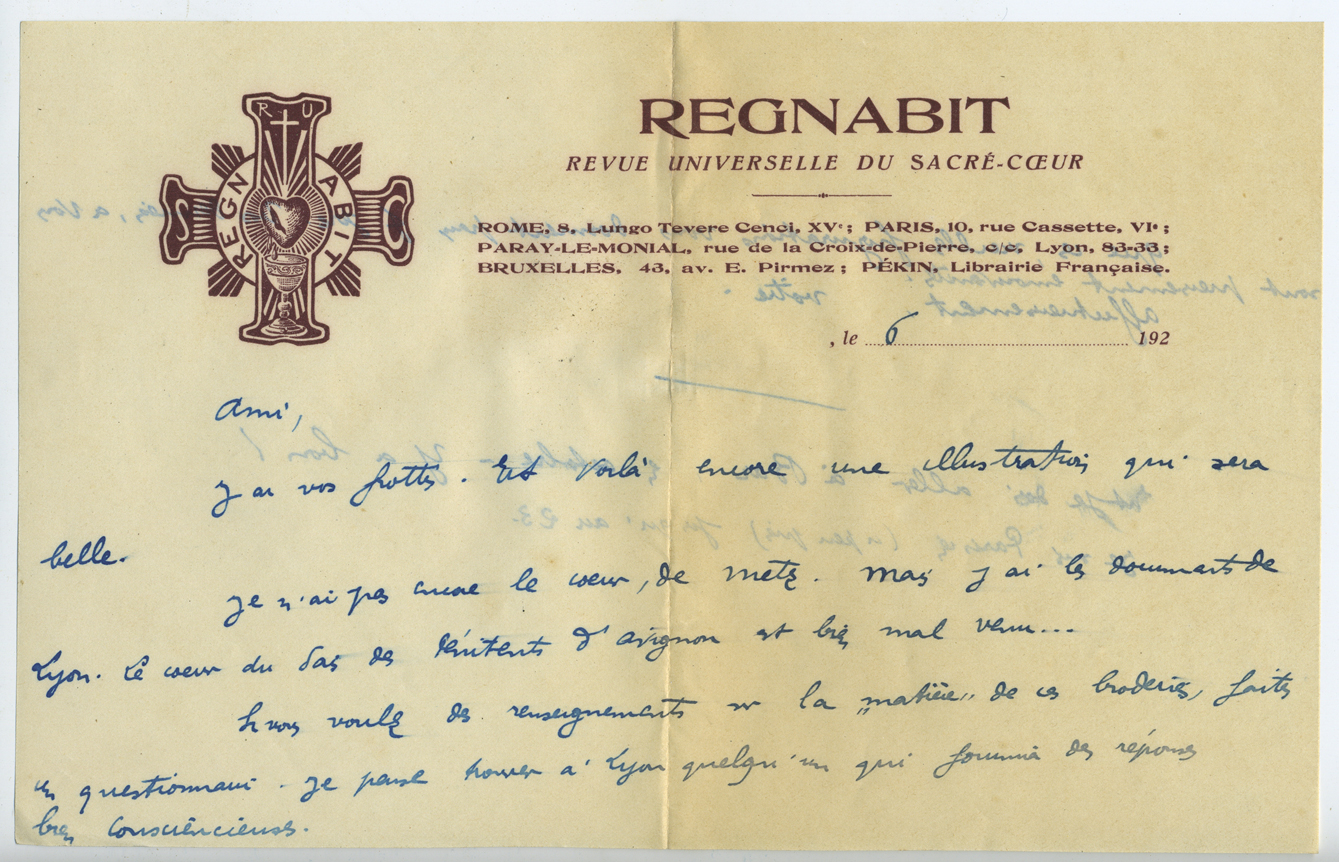 R U
REGNABIT
REGNABIT
REVUE UNIVERSELLE DU SACRÉ-CŒUR
ROME, 8, Lungo Tevere Cenci, XVᵉ ; PARIS, 10, rue Cassette, VIᵉ ;
PARAY-LE-MONIAL, rue de la Croix-de-Pierre, c/c. Lyon, 83-33 ;
BRUXELLES, 43, av. E. Pirmez ; PÉKIN, Librairie Française.
, le 6 192
Ami,
J'ai vos frottis. Et voilà encore une illustration qui sera
belle.
Je n'ai pas encore le cœur, de Metz. Mais j'ai les documents de
Lyon. Le cœur du des Pénitents d'Avignon est bien mal venu...
Si vous voulez des renseignements sur la „matière„ de ces broderies, faites
un questionnaire. Je pense trouver à Lyon quelqu'un qui fournira des réponses
bien consciencieuses.